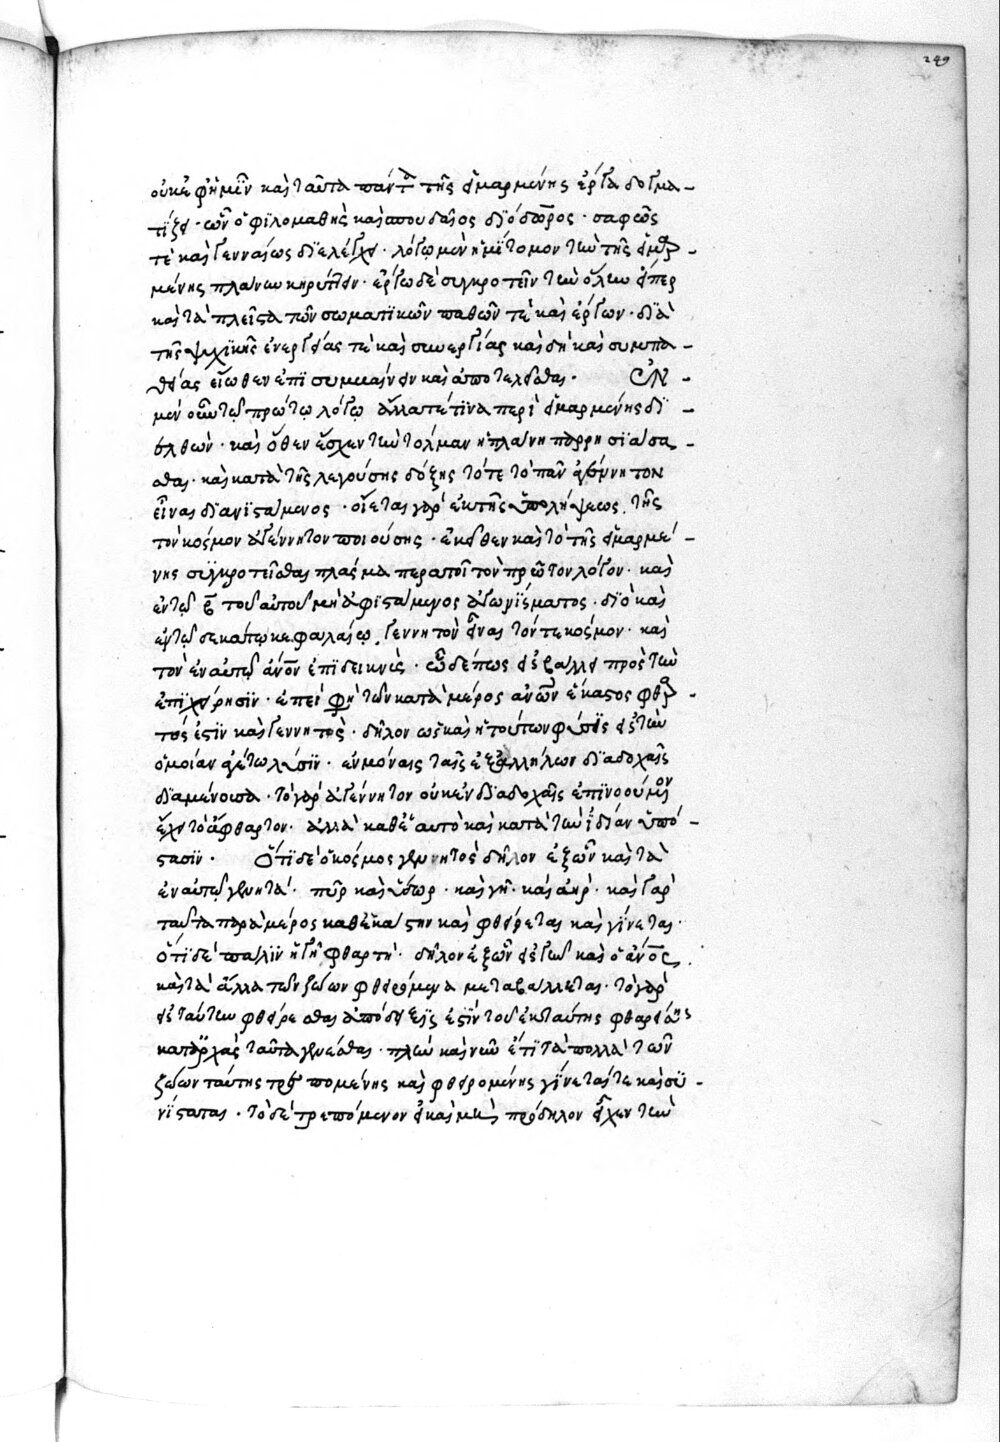 249
οὐκ ἐφ' ἡμῖν καὶ ταῦτα πάντα τῆς εἱμαρμένης ἔργα δογμα-
τίζει· ὧν ὁ φιλομαθὴς καὶ σπουδαῖος διόδωρος· σαφῶς
τὲ καὶ γενναίως διελέγχει· λόγω μὲν ἡμίτομον τὴν τῆς εἱμαρ-
μένης πλάνην κηρύττειν· ἔργω δὲ συγκροτεῖν τὴν ὅλην εἴπερ
καὶ τὰ πλεῖστα τῶν σωματικῶν παθῶν τὲ καὶ ἔργων· διὰ
τῆς ψυχικῆς ἐνεργείας τὲ καὶ συνεργίας καὶ δὴ καὶ συμπα-
θείας εἴωθεν ἐπισυμβαίνειν καὶ ἀποτελεῖσθαι· Ἐν -
μὲν οὖν τῶ πρώτω λόγω ἄλλα τέ τινα περὶ εἱμαρμένης δι -
ελθὼν· καὶ ὅθεν ἔσχεν τὴν τόλμαν ἡ πλάνη παρρησιάσα-
σθαι· καὶ κατὰ τῆς λεγούσης δόξης τότε τὸ πᾶν ἀγέννητον
εἶναι διανιστάμενος· οἴεται γὰρ ἐκ τῆς ὑπολήψεως, τῆς
τὸν κόσμον ἀγέννητον ποιούσης· ἐκεῖθεν καὶ τὸ τῆς εἱμαρμέ-
νης συγκροτεῖσθαι πλάσμα περατοῖ τὸν πρῶτον λόγον· καὶ
ἐν τῶ β τοῦ αὐτοῦ μὴ ἀφιστάμενος ἀγωνίσματος· διὸ καὶ
ἐν τῶ δεκάτω κεφαλαίω, γεννητὸν εἶναι τόν τε κόσμον· καὶ
τὸν ἐν αὐτῶ ἄνον ἐπιδεικνὺς· ὧδέ πως εἰσβάλλει πρὸς τὴν
ἐπιχείρησιν· ἐπεὶ φὴ τῶν κατὰ μέρος ἀνων ἕκαστος φθαρ-
τός ἐστιν καὶ γεννητὸς· δῆλον ὡς καὶ ἡ τούτων φύσις εἰς τὴν
ὁμοίαν ἄγεται λύσιν· ἐν μόναις ταῖς ἐξ ἀλλήλων διαδοχαῖς
διαμένουσα· τὸ γὰρ ἀγέννητον οὐκ ἐν διαδοχαῖς ἐπινοούμενον
ἔχει τὸ ἄφθαρτον· ἀλλὰ καθ' ἑαυτὸ καὶ κατὰ τὴν ἰδίαν ὑπό-
στασιν· Ὅτι δὲ ὁ κόσμος γενητὸς δῆλον ἐξ ὧν καὶ τὰ
ἐν αὐτῶ γενητά· πῦρ καὶ ὕδωρ· καὶ γῆ· καὶ ἀὴρ· καὶ γὰρ
ταῦτα παρὰ μέρος καθ' ἑκάστην καὶ φθείρεται καὶ γίνεται·
ὅτι δὲ πάλιν ἡ γῆ φθαρτὴ· δῆλον ἐξ ὧν εἰς γῆν καὶ ὁ ἄνος,
καὶ τὰ ἄλλα τῶν ζώων φθειρόμενα μεταβάλλεται· τὸ γὰρ
εἰς ταύτην φθείρεσθαι ἀπόδειξις ἐστὶν τοῦ ἐκ ταύτης φθαρείσης
καταρχὰς ταῦτα γενέσθαι· πλὴν καὶ νῦν ἔτι τὰ πολλὰ τῶν
ζώων ταύτης τρεπομένης καὶ φθειρομένης γίνεταί τε καὶ συ-
νίσταται· τὸ δὲ τρεπόμενον εἰ καὶ μὴ πρόδηλον εἶχεν τὴν